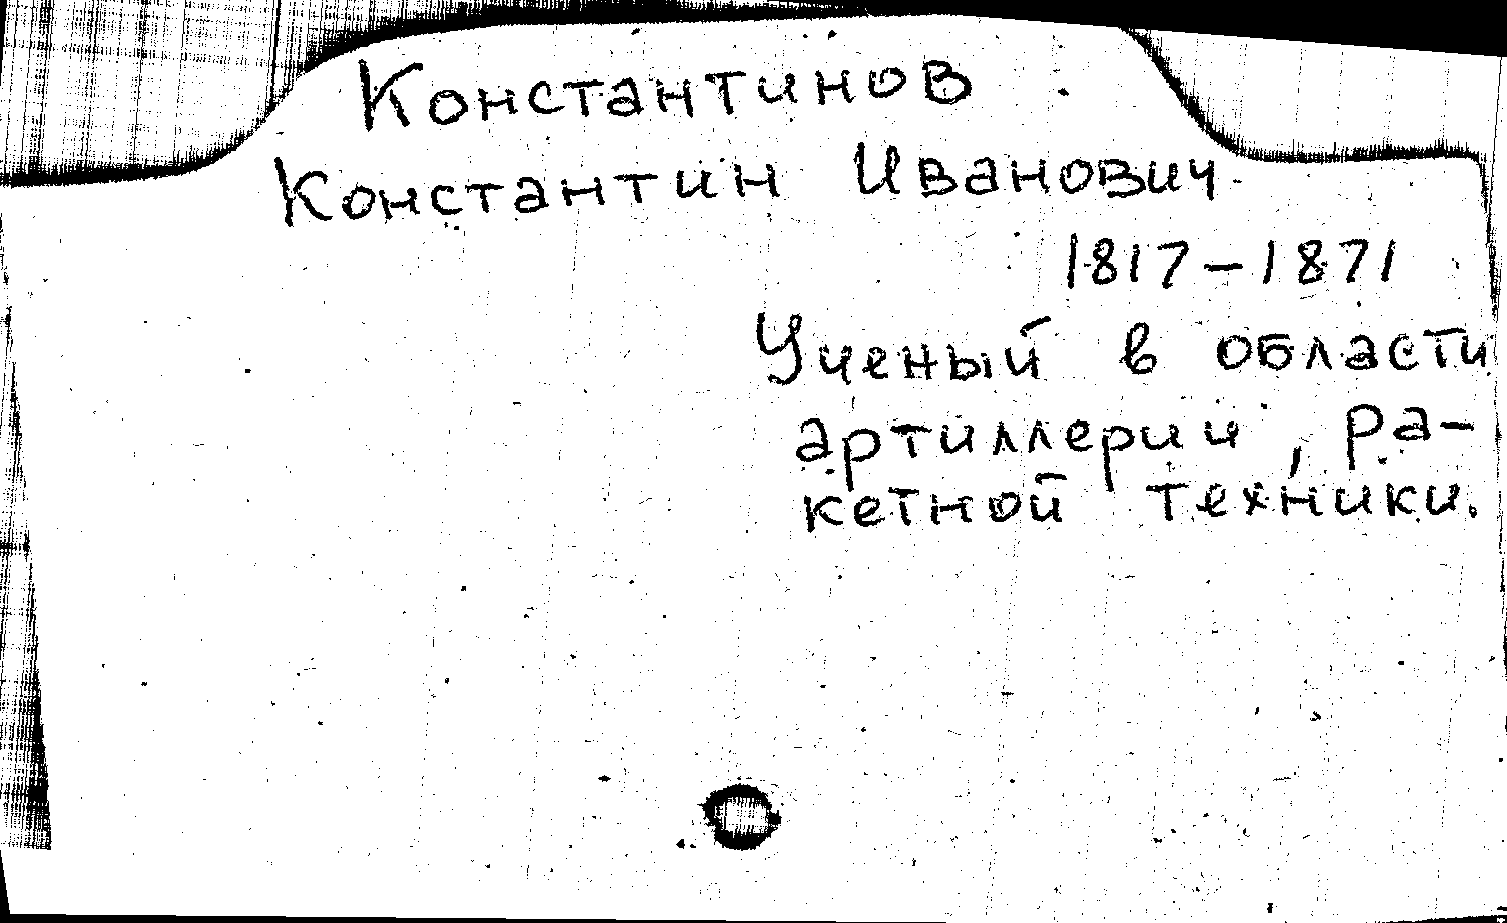 Константинов
Константин Иванович
1817-1871
Ученый в области
артиллерии, ра-
кетной техники.